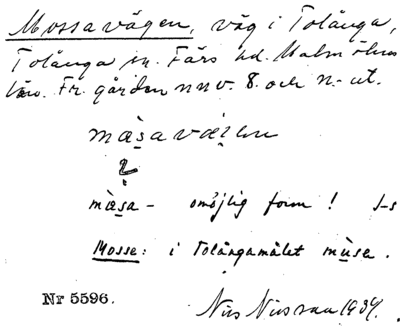 Mossavägen, väg i Tolånga,
Tolånga sn. Färs hd. Malmöhus
län. Fr. gården nnv. 8. och n.- ut.
mæ̀sa
?
mæ̀sa - omöjlig form! J-s
Mosse: i Tolångamålet mùsa.
Nr 5596.
Nils Nilsson 1934.